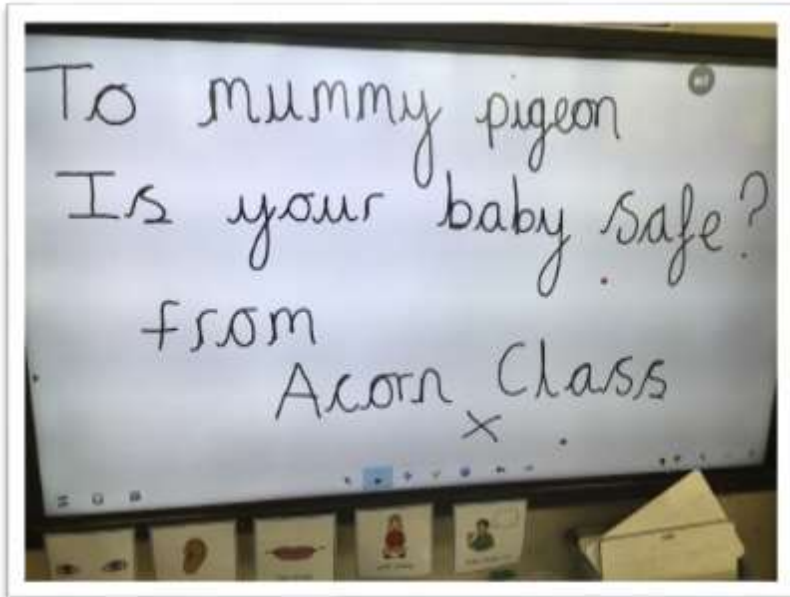 To mummy pigeon
Is your baby safe?
from
Acorn Class
x